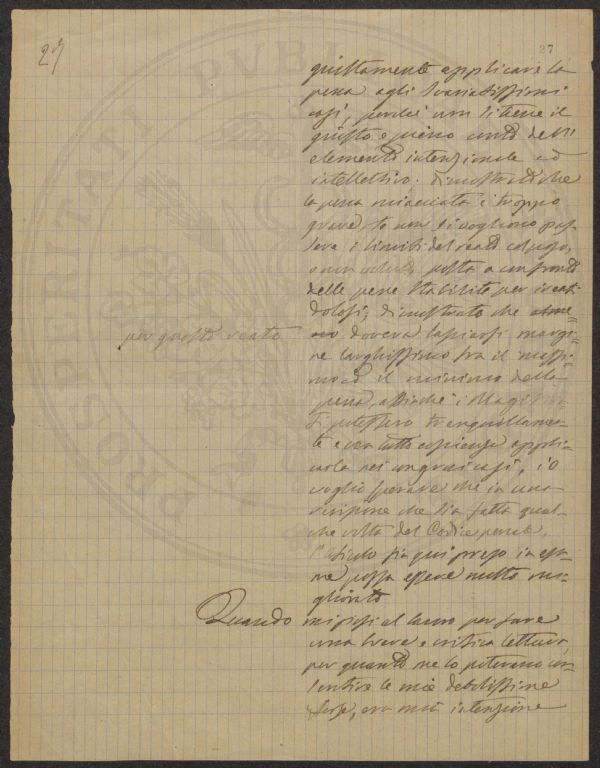 27
27
giustamente applicare la
pena agli svariatissimi
casi, perchè non si tiene il
giusto e pieno conto dell'
elemento intenzionale ed
intellettivo; dimostrato che
la pena minacciata è troppo
grave, se non si vogliono pas-
sare i limiti del reato colposo,
e non posta a confronto
delle pene stabilite per i reati
dolosi; dimostrato che
per questo reato
doveva lasciarsi margi-
ne larghissimo fra il massi-
mo ed il minimo della
pena, affinché i Magistra-
ti potessero tranquillamen-
te e con tutta coscienza appli-
carla nei congrui casi, io
voglio sperare che in una
revisione che sia fatta qual-
che volta del Codice penale,
l'articolo fin qui preso in esa-
me possa essere molto mi-
gliorato
Quando mi posi al lavoro per fare
una breve e critica lettura,
per quanto me lo potevano con-
sentire le mie debolissime
forze, era mia intenzione
PROSPERITATI PUBL